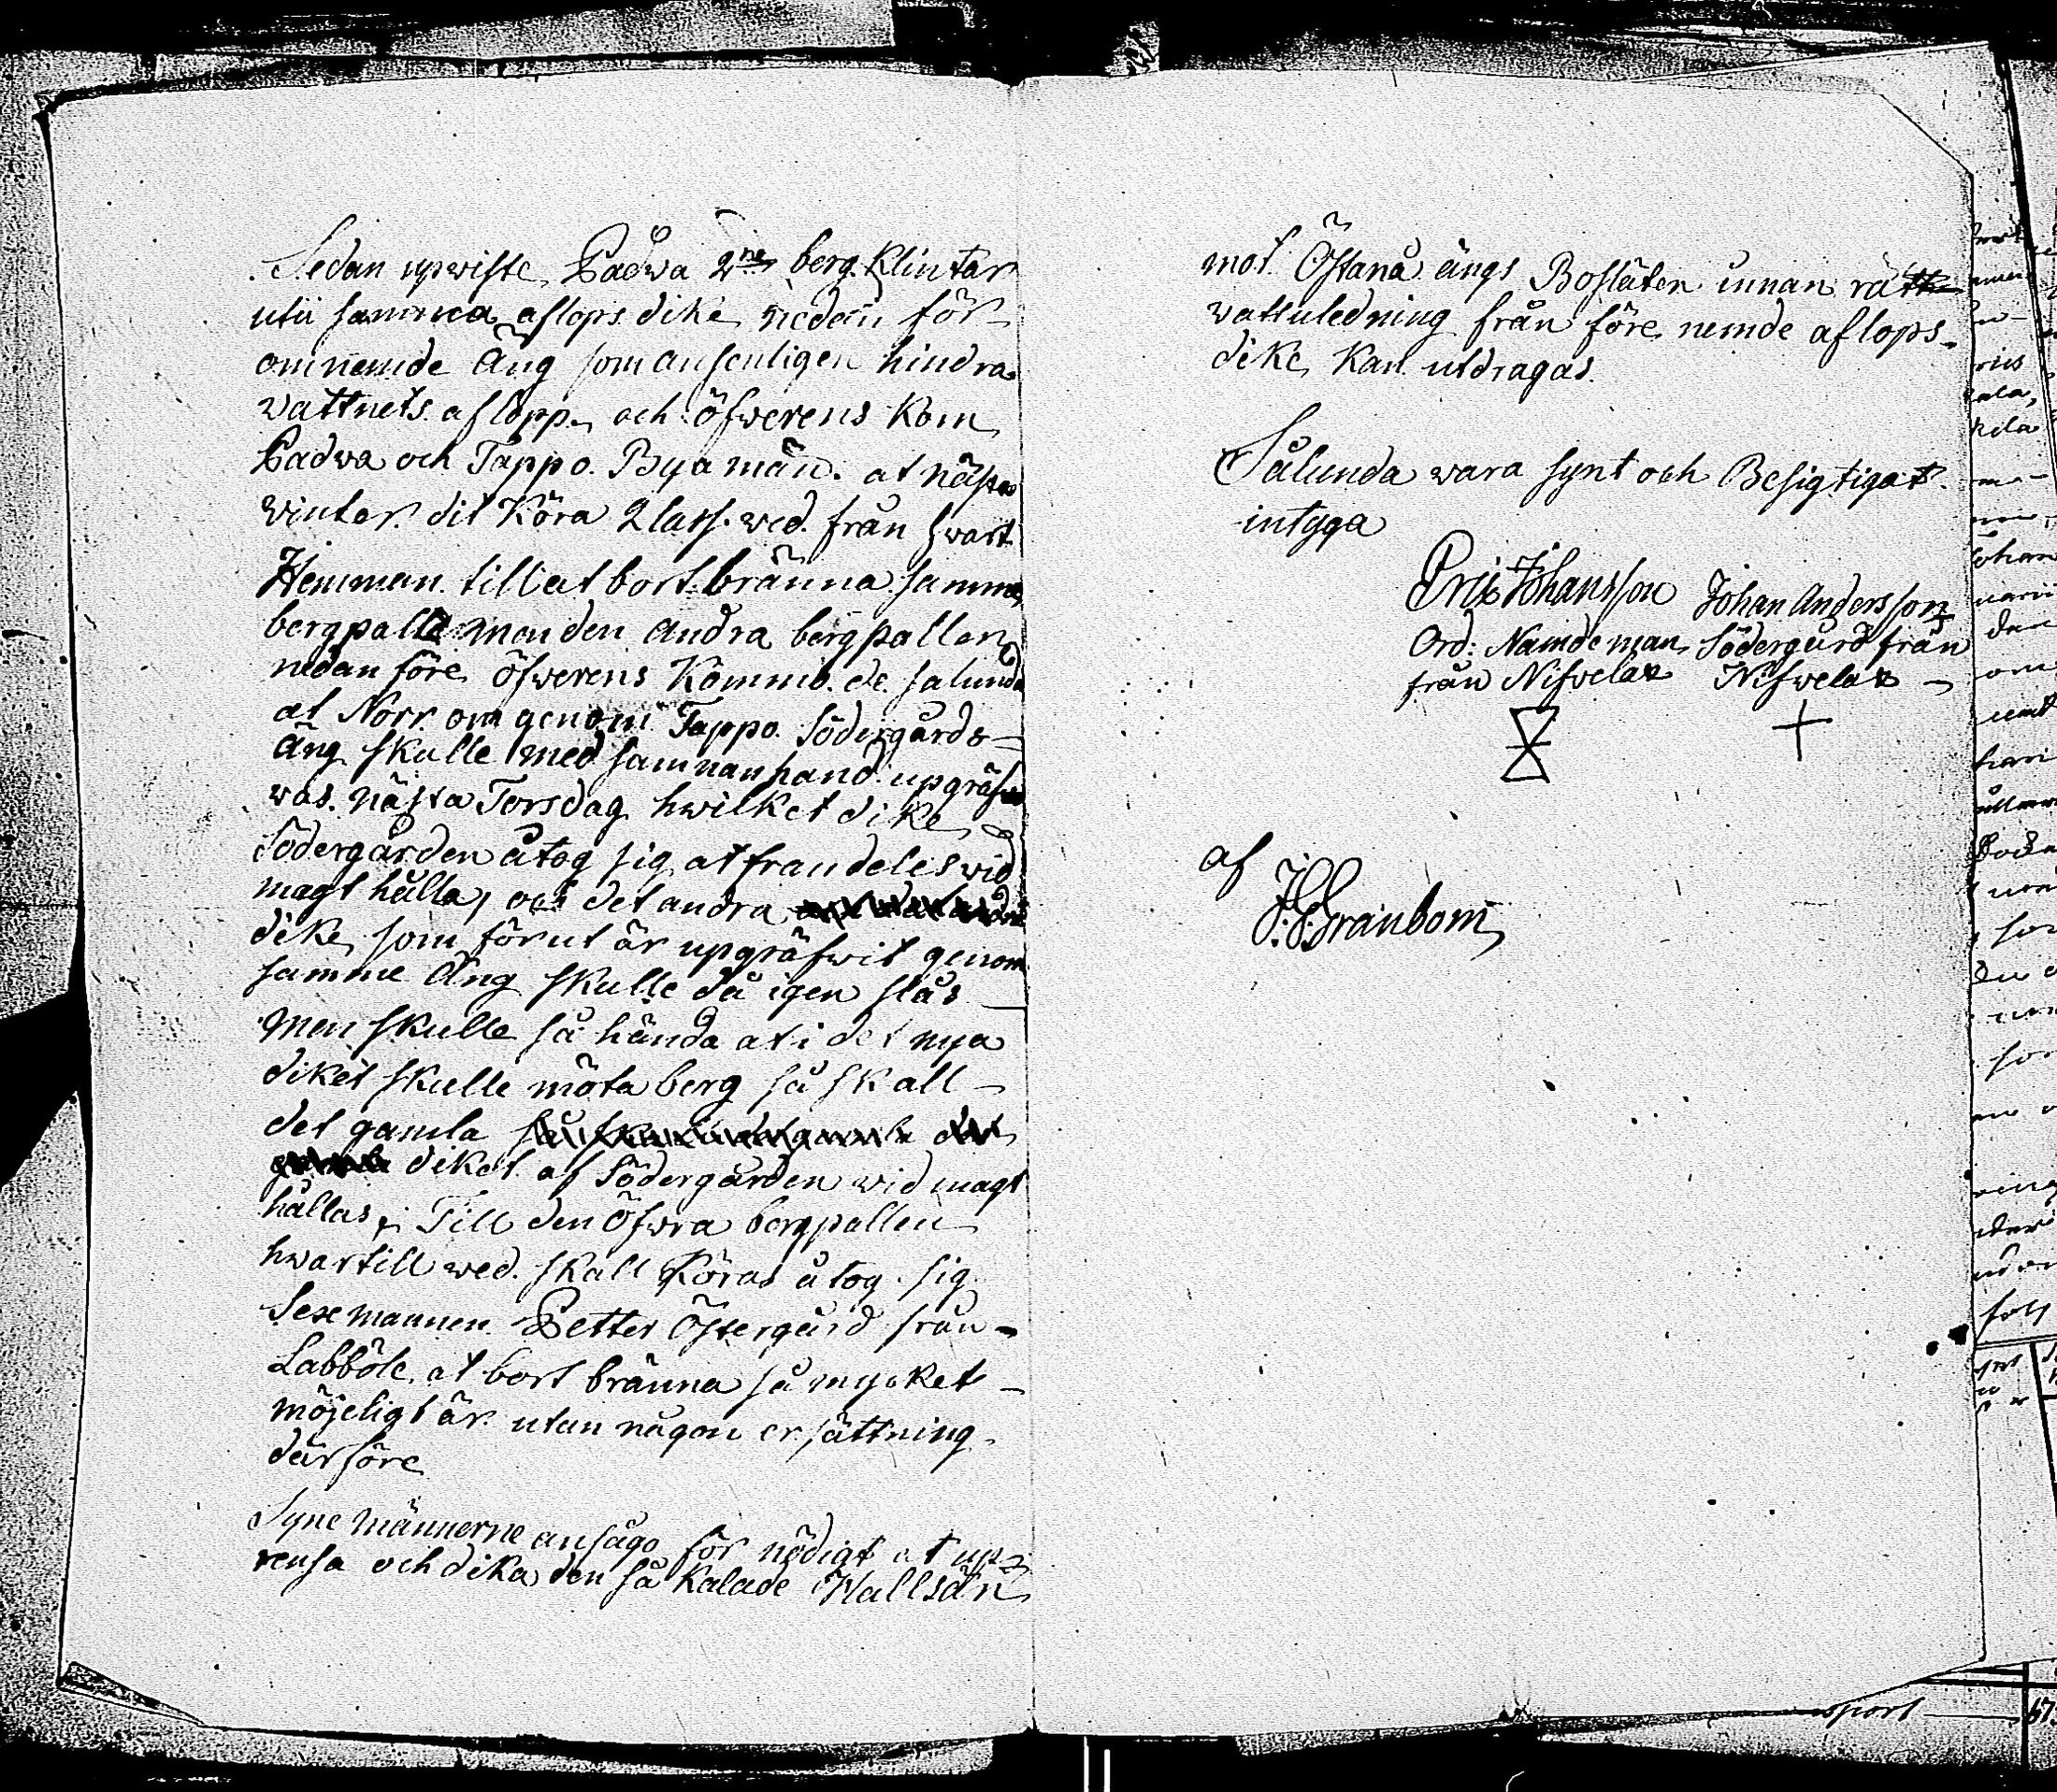 Sedan upwiste Padwa 2ne berg Klintar
utii samma aflops dike nedan för-
omnemde Äng som ansenligen hindra
wattnets aflopp, och öfwerens Kom
Padwa och Tappo. Bya män. at nästa
winter. dit Köra 2 lass. wed. från hwart
Hemman till at bort bränna samma
bergpall men den andra bergpallen
nedan före öfwerens Kommo. de. salunda
at Norr om genom Tappo. Södergårds-
Äng skulle med samnan hand. upgräfw
was. nästa Torsdag hwilket dike
Södergården åtog sig at framdeles wid
magt hålla, och det andra
dike som förut är upgräfwit genom
samme Äng skulle då igen slås
Men skulle så hända at i det nya
diket skulle möta berg så skall -
det gamla
diket af Södergården wid magt
hållas, Till den Öfwra bergpallen
hwartill wed. skall Köras åtog. sig
Sexmannen Petter Östergård från -
Labböle. at bort bränna så mycket -
möjeligt är utan någon ersättning
därföre
Syne männerne ansågo för nödigt at up-
rensa och dika den så Kalade Hallsån
mot Östanå ängs Boslåten innan rätt
wattuledning från före nemde aflops-
dike Kan utdragas.
Sålunda wara synt och Besigtigat
intyga
Eric Johansson Johan Andersson
Ord: Nämdeman Södergård från
från Nifvelax Nifwelax -
af
J. Granbom